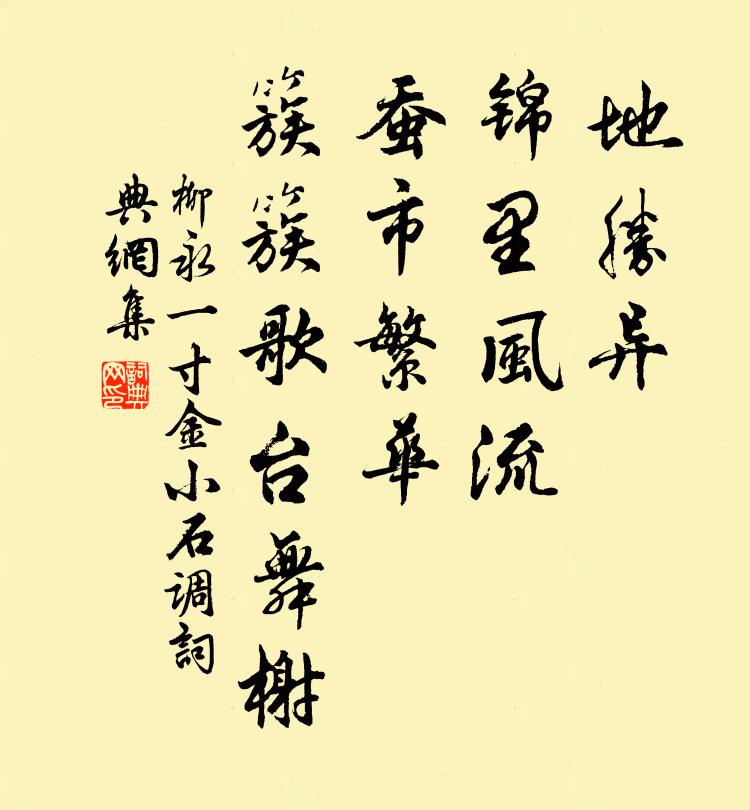 地勝异
锦里風流
蚕市繁華
簇簇歌台舞榭
柳永一寸金小石调詞
典網集
詞典
网印